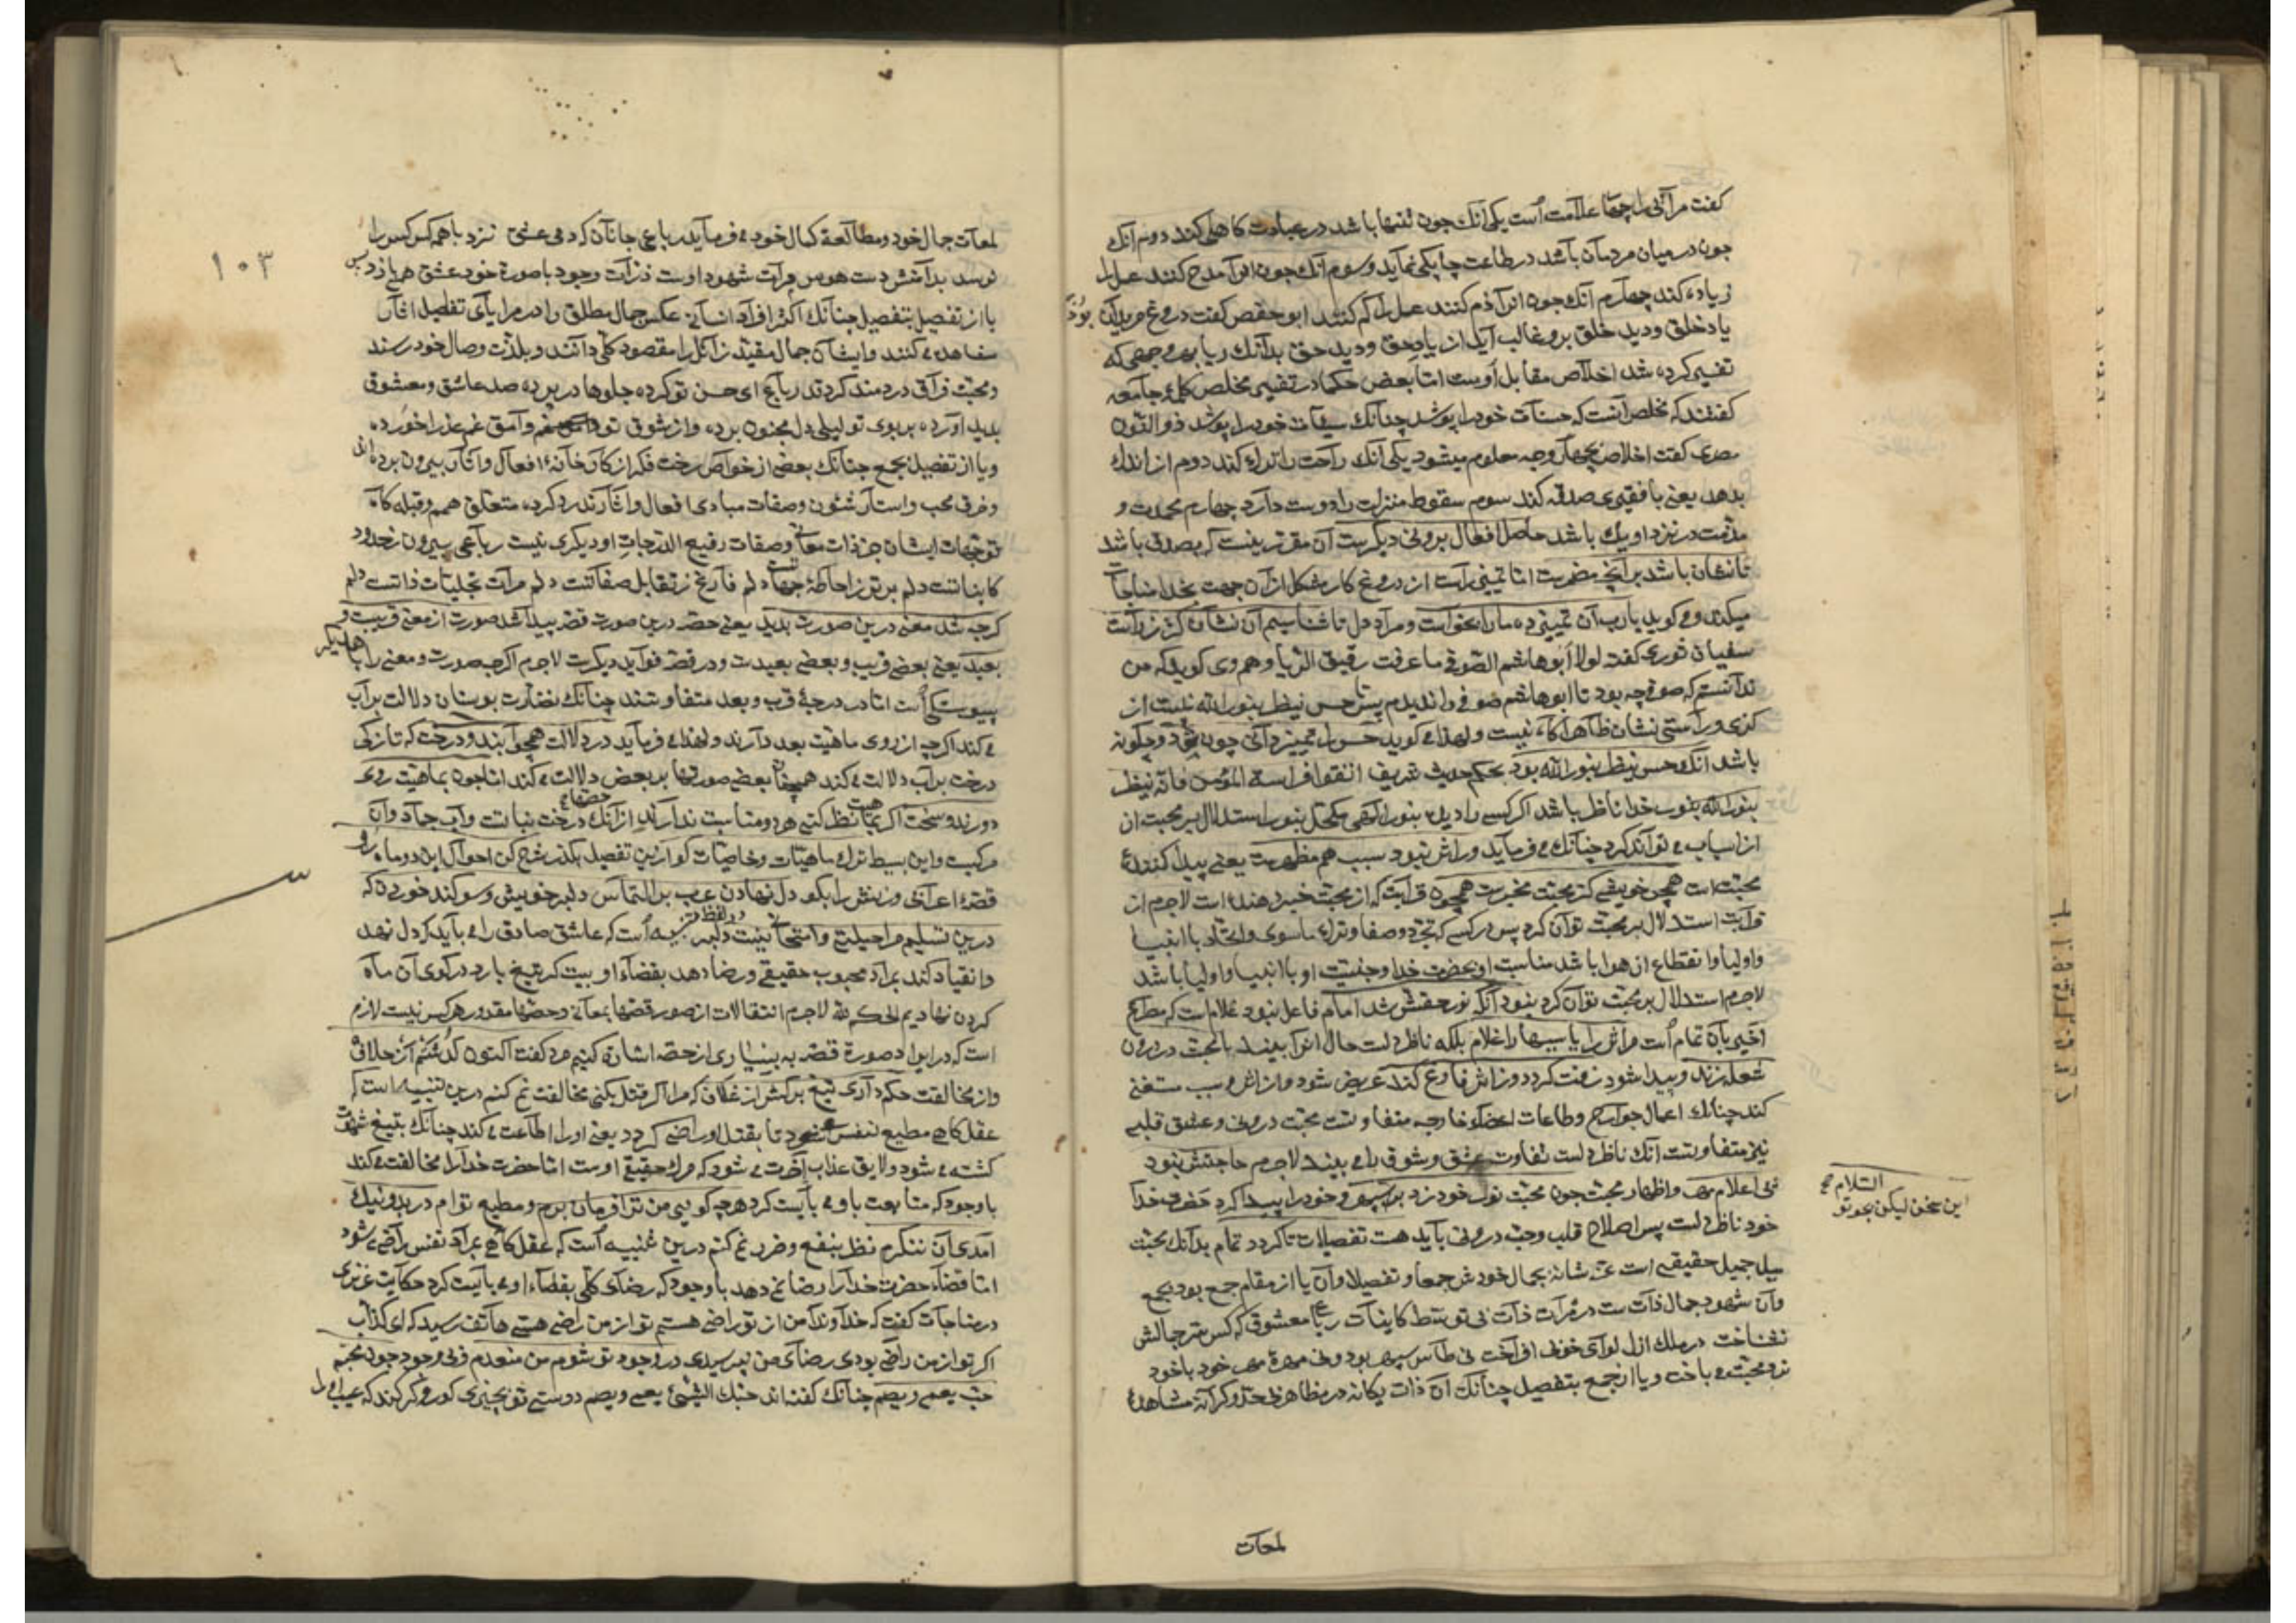 گفت مرائی را چهار علامت است یکی آنک چون تنها باشد در عبادت کاهلی کند دوم آنک
چون در میان مردمان باشد در طاعت چابکی نماید و سوم آنک چون او را مدح کنند عمل را
زیاده کند چهارم آنک چون او را ذم کنند عمل را کم کند ابو حفص کفت
یاد خلق و دید خلق برو غالب آید از یاد حق و دید حق بدآنک ریا بهر وجهی که
تفسیر کرده شد اخلاص مقابل اوست اما بعض حکما در تفسیر مخلص کلمۀ جامعه
کفتند که مخلص آنست که حسنات خود را پوشد چنانک سیئات خود را پوشد ذو النون
مصری کفت اخلاص بچهار وجه معلوم میشود یکی آنک راحت را ترک کند دوم از اندک
بدهد یعنی با فقیری صدقه کند سوم سقوط منزلت را دوست دارد چهارم محمدت و
مذمت در نزد او یک باشد حاصل افعال برونی دیکرست آن مقرر نیست که بصدق باشد
تا نشان باشد بر آنچه مضمرست اما تمییز راست از دروغ کار مشکل از آن جهت بخدا مناجات
میکند و می کوید یا رب آن تمییز ده ما را بخواست و مراد دل تا شناسیم آن نشان کژ ز راست
سفیان ثوری کفته لولا ابو هاشم الصوفی ما عرفت دقیق الریا و هم وی کوید که من
ندانستم که صوفی چه بود تا ابو هاشم صوفی را ندیدم پس حس ینظر بنور الله نیست از
کژی و راستی نشان ظاهرا آکاه نیست و لهذا می کوید حس را تمییز دانی چون شود و چکونه
باشد آنک حس ینظر بنور الله بود بحکم حدیث شریف اتقوا فراسة المؤمن فانه ینظر
بنور الله بنور خدا ناظر باشد اگر کسی را دیده بنور الهی مکحل بنور استدلال بر محبت از
از اسباب می تواند کرد چنانک می فرماید ور اثر نبود سبب هم مظهرست یعنی پیدا کنندۀ
محبت است همچو خویشی کز محبت مخبرست همچون قرابت که از محبت خبر دهنده است لاجرم از
قرابت استدلال بر محبت توان کرد پس در کسی که تجرد و صفا و ترک ما سوی و اتحاد با انبیا
و اولیا و انقطاع از هوا باشد مناسبت او بحضرت خدا و جنسیت او با انبیا و اولیا باشد
لاجرم استدلال بر محبت توان کرد نبود آنک نور حقش شد امام
شعله زند و پیدا شود زفت کردد وز اثر فارغ کند عریض شود و از اثر و سبب مستغنی
کند چنانک اعمال جوارح و طاعات اعضاء خارجه متفاوتست محبت درونی و عشق قلبی
نیز متفاوتست آنک ناظر دلست تفاوت عشق و شوق را می بیند لاجرم حاجتش نبود
پی اعلام مهر و اظهار محبت چون محبت نور خود زد بر سپهر و خود را پیدا کرد حضرت خدا
خود ناظر دلست پس اصلاح قلب و محبت درونی باید هست تفصیلات تا کردد تمام بدآنک محبت
میل جمیل حقیقی است عز شانه بجمال خودش جمعا و تفصیلا و آن یا از مقام جمع بود بجمع
و آن شهود جمال ذات است در مرآت ذات بی توسط کاینات رباعی معشوق که کس سر جمالش
نشناخت در ملک ازل لوای خوبی افراخت نی طاس سپهر بود و نی مهرۀ مهر خود با خود
نرد محبت می باخت و یا از جمع بتفصیل چنانک آن ذات یکانه در مظاهر بی حد و کرانه مشاهدۀ
السلام
این سخن لیکن بجو تو
لمعات
۱۰۳
لمعات جمال خود و مطالعۀ کمال خود می فرماید رباعی جانان که دم عشق زند با همه کس کس را
نرسد بدامنش دست هوس مرآت شهود اوست ذرات وجود با صورة خود عشق همی بازد و بس
یا از تفصیل بتفصیل چنانک اکثر افراد انسانی عکس جمال مطلق را در مرایای تفاصیل آثار
مشاهده می کنند و ایشان جمال مقید زائل را مقصود کلی دانند و بلذت وصال خود رسند
و محنت فراق دردمند کردند رباعی ای حسن تو کرده جلوها در پرده صد عاشق و معشوق
پدید آورده بر بوی تو لیلی دل مجنون برده وز شوق تو وامق غم عذرا خورده
و یا از تفصیل بجمع چنانک بعضی از خواص رخت فکر از کارخانۀ افعال و آثار بیرون برده اند
و خرق حجب و استار شئون و صفات مبادی افعال و آثارند رد کرده متعلق همم و قبله کاه
توجهات ایشان جز ذات متعالی و صفات رفیع الدرجات او دیکری نیست رباعی بیرون ز حدود
کایناتست دلم برتر ز احاطۀ جهاتست دلم فارغ ز تقابل صفاتست دلم مرآت تجلیات ذاتست دلم
کرچه شد معنی درین صورت پدید یعنی حصه درین صورت قصه پیدا شد صورت از معنی قریبست و
بعید یعنی بعضی قریب و بعضی بعیدست و در قصه فواید دیکرست لاجرم اکرچه صورت و معنی را با همدیکر
پیوستکی است اما در درجۀ قرب و بعد متفاوتند چنانک نضارت بوستان دلالت بر آب
می کند اکرچه از روی ماهیت بعد دارند و لهذا می فرماید در دلالت همچو آبند و درخت که تازکی
درخت بر آب دلالت می کند همچنان بعضی صورتها بر بعض دلالت می کند اما چون بماهیت روی
دورند و سخت اکر بماهیت نظر کنی هر دو مناسبت ندارند از آنک درخت نباتست و آب جماد و آن
مرکبست و این بسیط ترک ماهیات و خاصیات کو ازین تفصیل بکذر شرح کن احوال این دو ماه رو
قصۀ اعرابی و زنش را بکو دل نهادن عرب بر التماس دلبر خویش و سوکند خوردن که
درین تسلیم مرا حیلتی و امتحانی نیست در لفظ دلبر تنبیه است که عاشق صادق را می باید که دل نهد
و انقیاد کند بمراد محبوب حقیقی و رضا دهد بقضاء او بیت کر تیغ بارد در کوی آن ماه
کردن نهادیم الحکم لله لاجرم انتقالات از صور قصها بمعانی و حصها مقدور هر کس نیست لازم
است که در ایراد صورة قصه به بسیاری از حصه اشارت کنیم مرد کفت اکنون کذشتم از خلاف
و از مخالفت حکم داری تیغ برکش از غلاف که مرا اکر قتل بکنی مخالفت نمی کنم درین تنبیه است که
عقل کاهی مطیع نفس می شود تا بقتل او راضی کردد یعنی او را اطاعت می کند چنانک بتیغ شهوت
کشته می شود و لایق عذاب آخرت می شود که مرک حقیقی اوست اما حضرت خدا را مخالفت می کند
با وجود که متابعت باو می بایست کرد هرچه کویی من ترا فرمان برم و مطیع توام در بد و نیک
آمد آن ننکرم نظر بنفع و ضرر نمی کنم درین تنبیه است که عقل کاهی بمراد نفس راضی می شود
اما قضاء حضرت خدا را رضا نمی دهد با وجود که رضای کلی بقضاء او می بایست کرد حکایت عزیزی
در مناجات کفت که خداوندا من از تو راضی هستم تو از من راضی هستی هاتف رسید که ای کذاب
اکر تو از من راضی بودی رضای من نپرسیدی در وجود تو شوم من منعدم نی وجود چون محبم
حب یعمی و یصم چنانک کفته اند حبک الشیئ یعمی و یصم دوستی تو بچیزی کور و کر کند که عیب او را